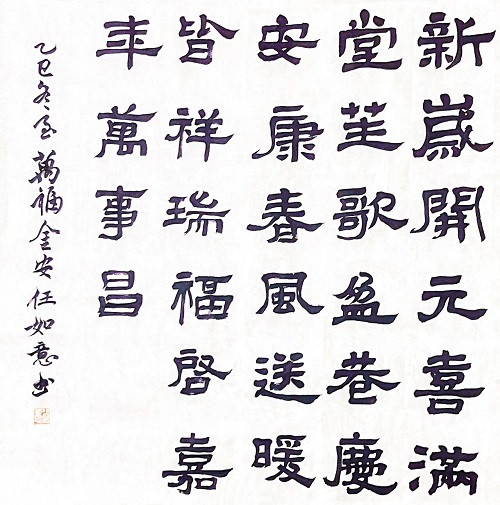 新歲開元喜滿
堂笙歌盈巷慶
安康春風送暖
皆祥瑞福啓嘉
年萬事昌
乙巳冬至萬福金安任如意书